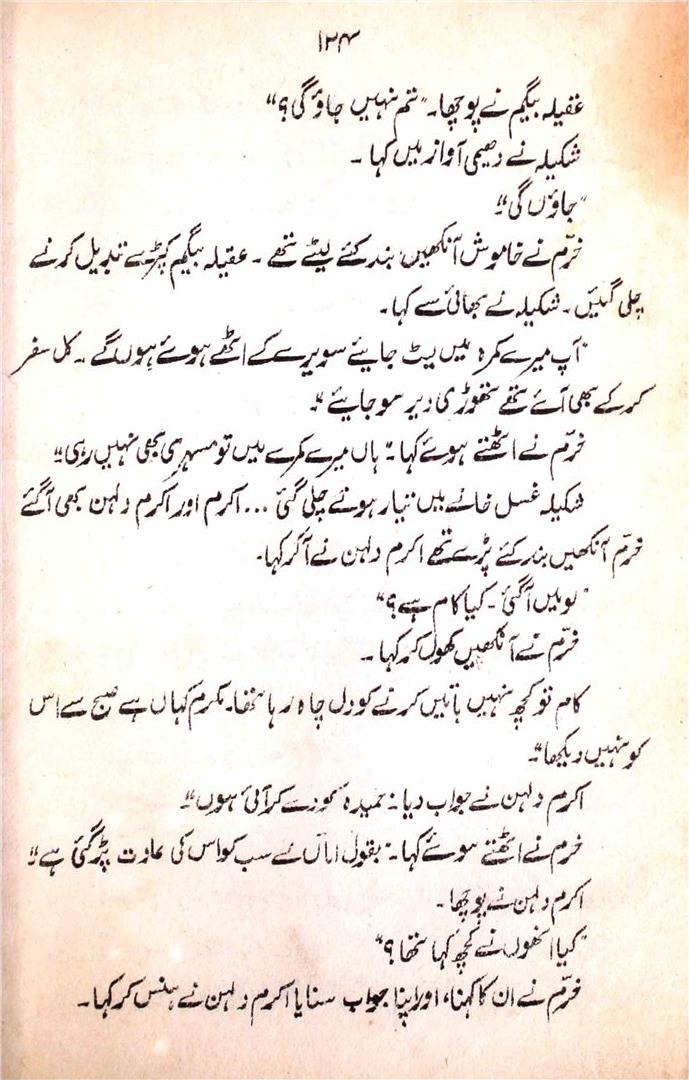 ۱۲۴
عقیلہ بیگم نے پوچھا۔ "تم نہیں جاؤ گی؟"
شکیلہ نے دھیمی آواز میں کہا ۔
"جاؤں گی"۔
خرّم نے خاموش آنکھیں بند کئے لیٹے تھے ۔ عقیلہ بیگم کپڑے تبدیل کرنے
چلی گئیں ۔ شکیلہ نے بھائی سے کہا ۔
"آپ میرے کمرہ میں لیٹ جایئے سویرے کے اٹھے ہوئے ہوں گے ۔۔ کل سفر
کر کے بھی آئے تھے تھوڑی دیر سو جایئے "۔
خرّم نے اٹھتے ہوئے کہا ۔ "ہاں میرے کمرے میں تو مسہری بھی نہیں رہی"۔
شکیلہ غسل خانے میں تیار ہونے چلی گئی ... اکرم اور اکرم دلہن بھی آ گئے
خرّم آنکھیں بند کئے پڑے تھے اکرم دلہن نے آ کر کہا۔
"لو میں آ گئی ۔ کیا کام ہے؟"
خرّم نے آنکھیں کھول کر کہا ۔
کام تو کچھ نہیں باتیں کرنے کو دل چاہ رہا تھا۔ مکرم کہاں ہے صبح سے اس
کو نہیں دیکھا"۔
اکرم دلہن نے جواب دیا : حمیدہ کو دے کر آئی ہوں"۔
خرّم نے اٹھتے ہوئے کہا ۔ "بقول اماں کے سب کو اس کی عادت پڑ گئی ہے"۔
اکرم دلہن نے پوچھا ۔
"کیا انھوں نے کچھ کہا تھا؟"
خرّم نے ان کا کہنا، اور اپنا جواب سنایا اکرم دلہن نے ہنس کر کہا ۔